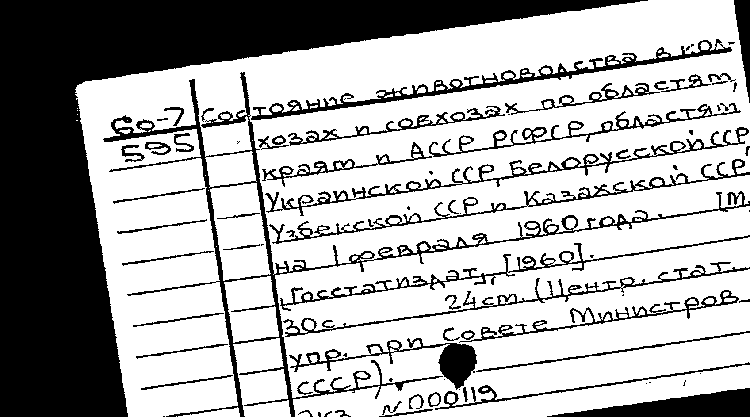 60-7 Состояние животноводства в кол-
595 хозах и совхозах по областям,
краям и АССР РСФСР, областям
Украинской ССР, Белорусской ССР,
Узбекской ССР и Казахской ССР
на 1 февраля 1960 года. [М.,
"Госстатиздат", [1960].
30с. 24см. (Центр. стат.
упр. при Совете Министров
СССР).
Экз. №000119